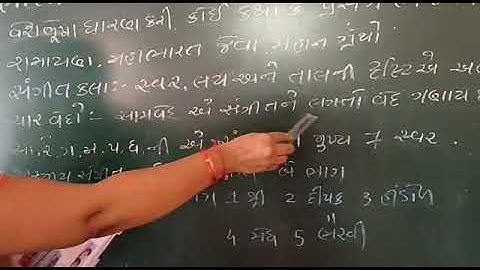 વેશભૂષા ધારણ કરી. કોઈ કથાકે પ્રસંગ
રામાયણ, મહાભારત જેવા મહાન ગ્રંથો
સંગીતકલા:- સ્વર, લય અને તાલની દૃષ્ટિએ
ચાર વેદો:- સામવેદ એ સંગીતને લગતો વેદ ગણાય
સા, રે, ગ, મ, પ, ધ, ની એ મુખ્ય 7 સ્વર.
બે ભાગ
1 શ્રી 2 દીપક 3 હિંડોળ
4 મેઘ 5 ભૈરવી